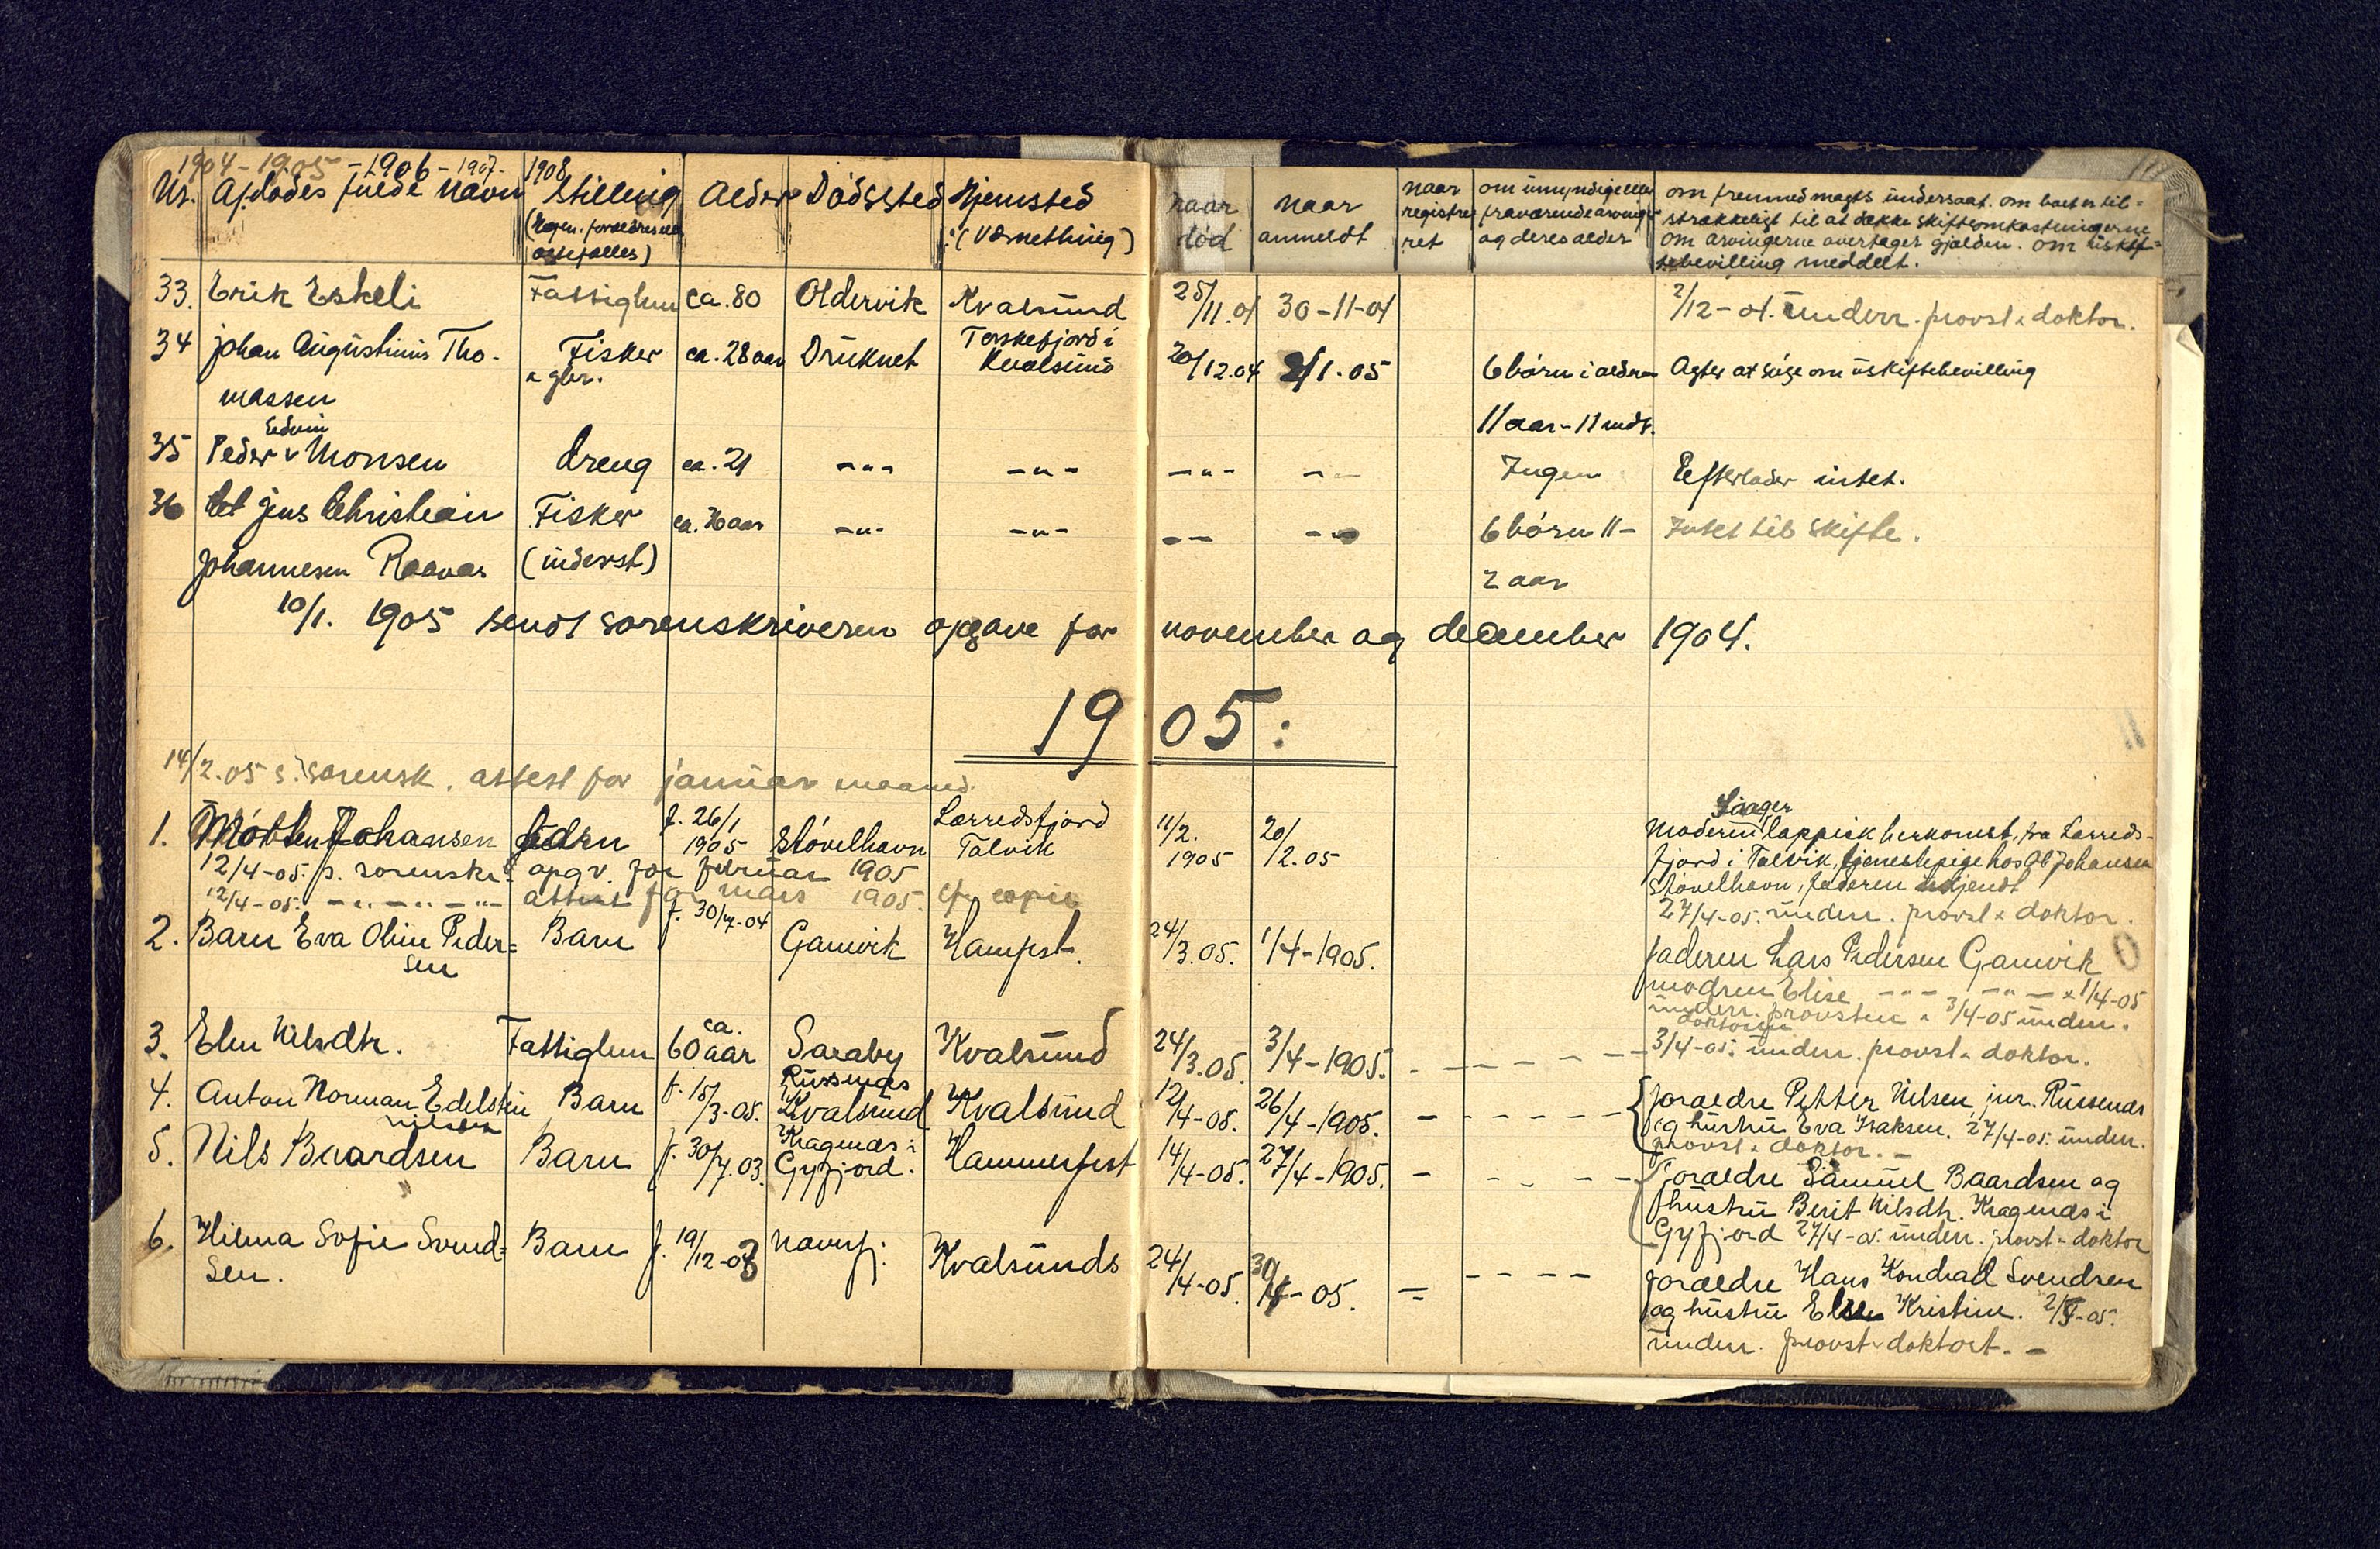 1904-1905-1906-1907-1908
Nr. Afdødes fulde navn Stilling Alder Dødssted Hjemsted naar død naar anmeldt naar registreret om umyndige eller fraværende arvinger og deres alder om fremmed magts undersaat. om boet er til=
(Egen. forældres eller :(Værnething) strækkeligt til at dække skifteomkostningerne
ægtefælles) om arvingerne overtager gjælden. om uskif=
tebevilling meddelt.
33. Erik Eskeli Fattiglem ca. 80 Oldervik Kvalsund 25/11.04 30-11-04 2/12-04. underr. provst & doktor.
34 Johan Augustinus Tho- Fisker ca. 28 aar Druknet Torskefjord i 20/12.04 2/1.05 6 børn i alderen Agter at søge om uskiftebevilling
massen & gbr. Kvalsund 11 aar - 11 mdr.
Edvin
35 Peder v Monsen dreng ca. 21 -"- -"- -"- - - Ingen Efterlader intet.
36 Jens Christian Fisker ca. 36 aar -"- -"- -- -- 6 børn 11- Intet til skifte.
Johannesen Raavas (inderst) 2 aar
10/1. 1905 sendt sorenskriveren opgave for november og december 1904.
1905:
14/2.05 s. sorensk. attest for januar maaned.
1. Morten Johansen f. 26/1 1905 Støvelhavn Lerredsfjord Talvik 11/2. 1905 20/2.05 Moderen lappisk herkomst, fra Lerreds-
fjord i Talvik, tjenestepige hos Johansen
Støvelhavn, faderen ukjendt
27/4-05. underr. provst & doktor.
12/4-05. s. sorenskr. opgv. for februar 1905
12/4-05. -"- -"- -"- attest for mars 1905. cfr. copie
2. Barn Eva Oline Peder= Barn f. 30/7-04 Gamvik Hampst. 24/3.05. 1/4-1905. faderen Lars Pedersen Gamvik
sen modren Elise -"- -"- & 1/4-05
underr. provsten & 3/4-05 underr.
doktoren
3. Elen Nilsdtr. Fattiglem ca. 60 aar Saraby Kvalsund 24/3.05. 3/4-1905. - - - - - 3/4-05. underr. provst & doktor.
4. Anton Norman Edelstin Barn f. 15/3-05. Russenæs Kvalsund Kvalsund 12/4-05. 26/4-1905. - - - - - - forældre Petter Nilsen jnr. Russenæs
Nilsen og hustru Eva Isaksen. 27/4-05. underr.
provst & doktor. -
5. Nils Baardsen Barn f. 30/7.03. Kragenæs i Gyfjord. Hammerfest 14/4-05. 27/4-1905. - - - - - Forældre Samuel Baardsen og
hustru Berit Nilsdtr. Kragenæs i
Gyfjord 27/4-05. underr. provst & doktor
6. Hilma Sofie Svend= Barn f. 19/12-03 Navnfj. Kvalsunds 24/4-05. 30/4-05. = - - - - forældre Hans Kondrad Svendsen
sen. og hustru Elen Kristine. 2/5-05.
underr. provst & doktort. -